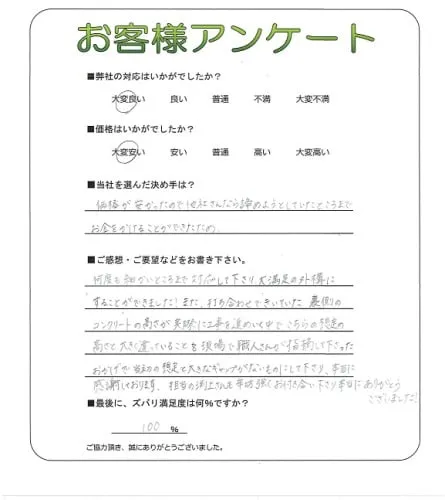 お客様アンケート
■弊社の対応はいかがでしたか？
大変良い 良い 普通 不満 大変不満
■価格はいかがでしたか？
大変安い 安い 普通 高い 大変高い
■当社を選んだ決め手は？
価格が安かったので他社さんなら諦めようとしていたところまで
お金をかけることができたため。
■ご感想・ご要望などをお書き下さい。
何度も細かいところまで対応して下さり大満足の外構に
することができました！また、打ち合わせできいていた 裏側の
コンクリートの高さが実際に工事を進めていく中でこちらの想定の
高さと大きく違っていることを現場で職人さんが指摘して下さった
おかげで当初の想定と大きなギャップがないものにして下さり、本当に
感謝しております。担当の渕上さんも年始強くお付き合い下さり本当に ありがとう
ございました！
■最後に、ズバリ満足度は何％ですか？
100 ％
ご協力頂き、誠にありがとうございました。